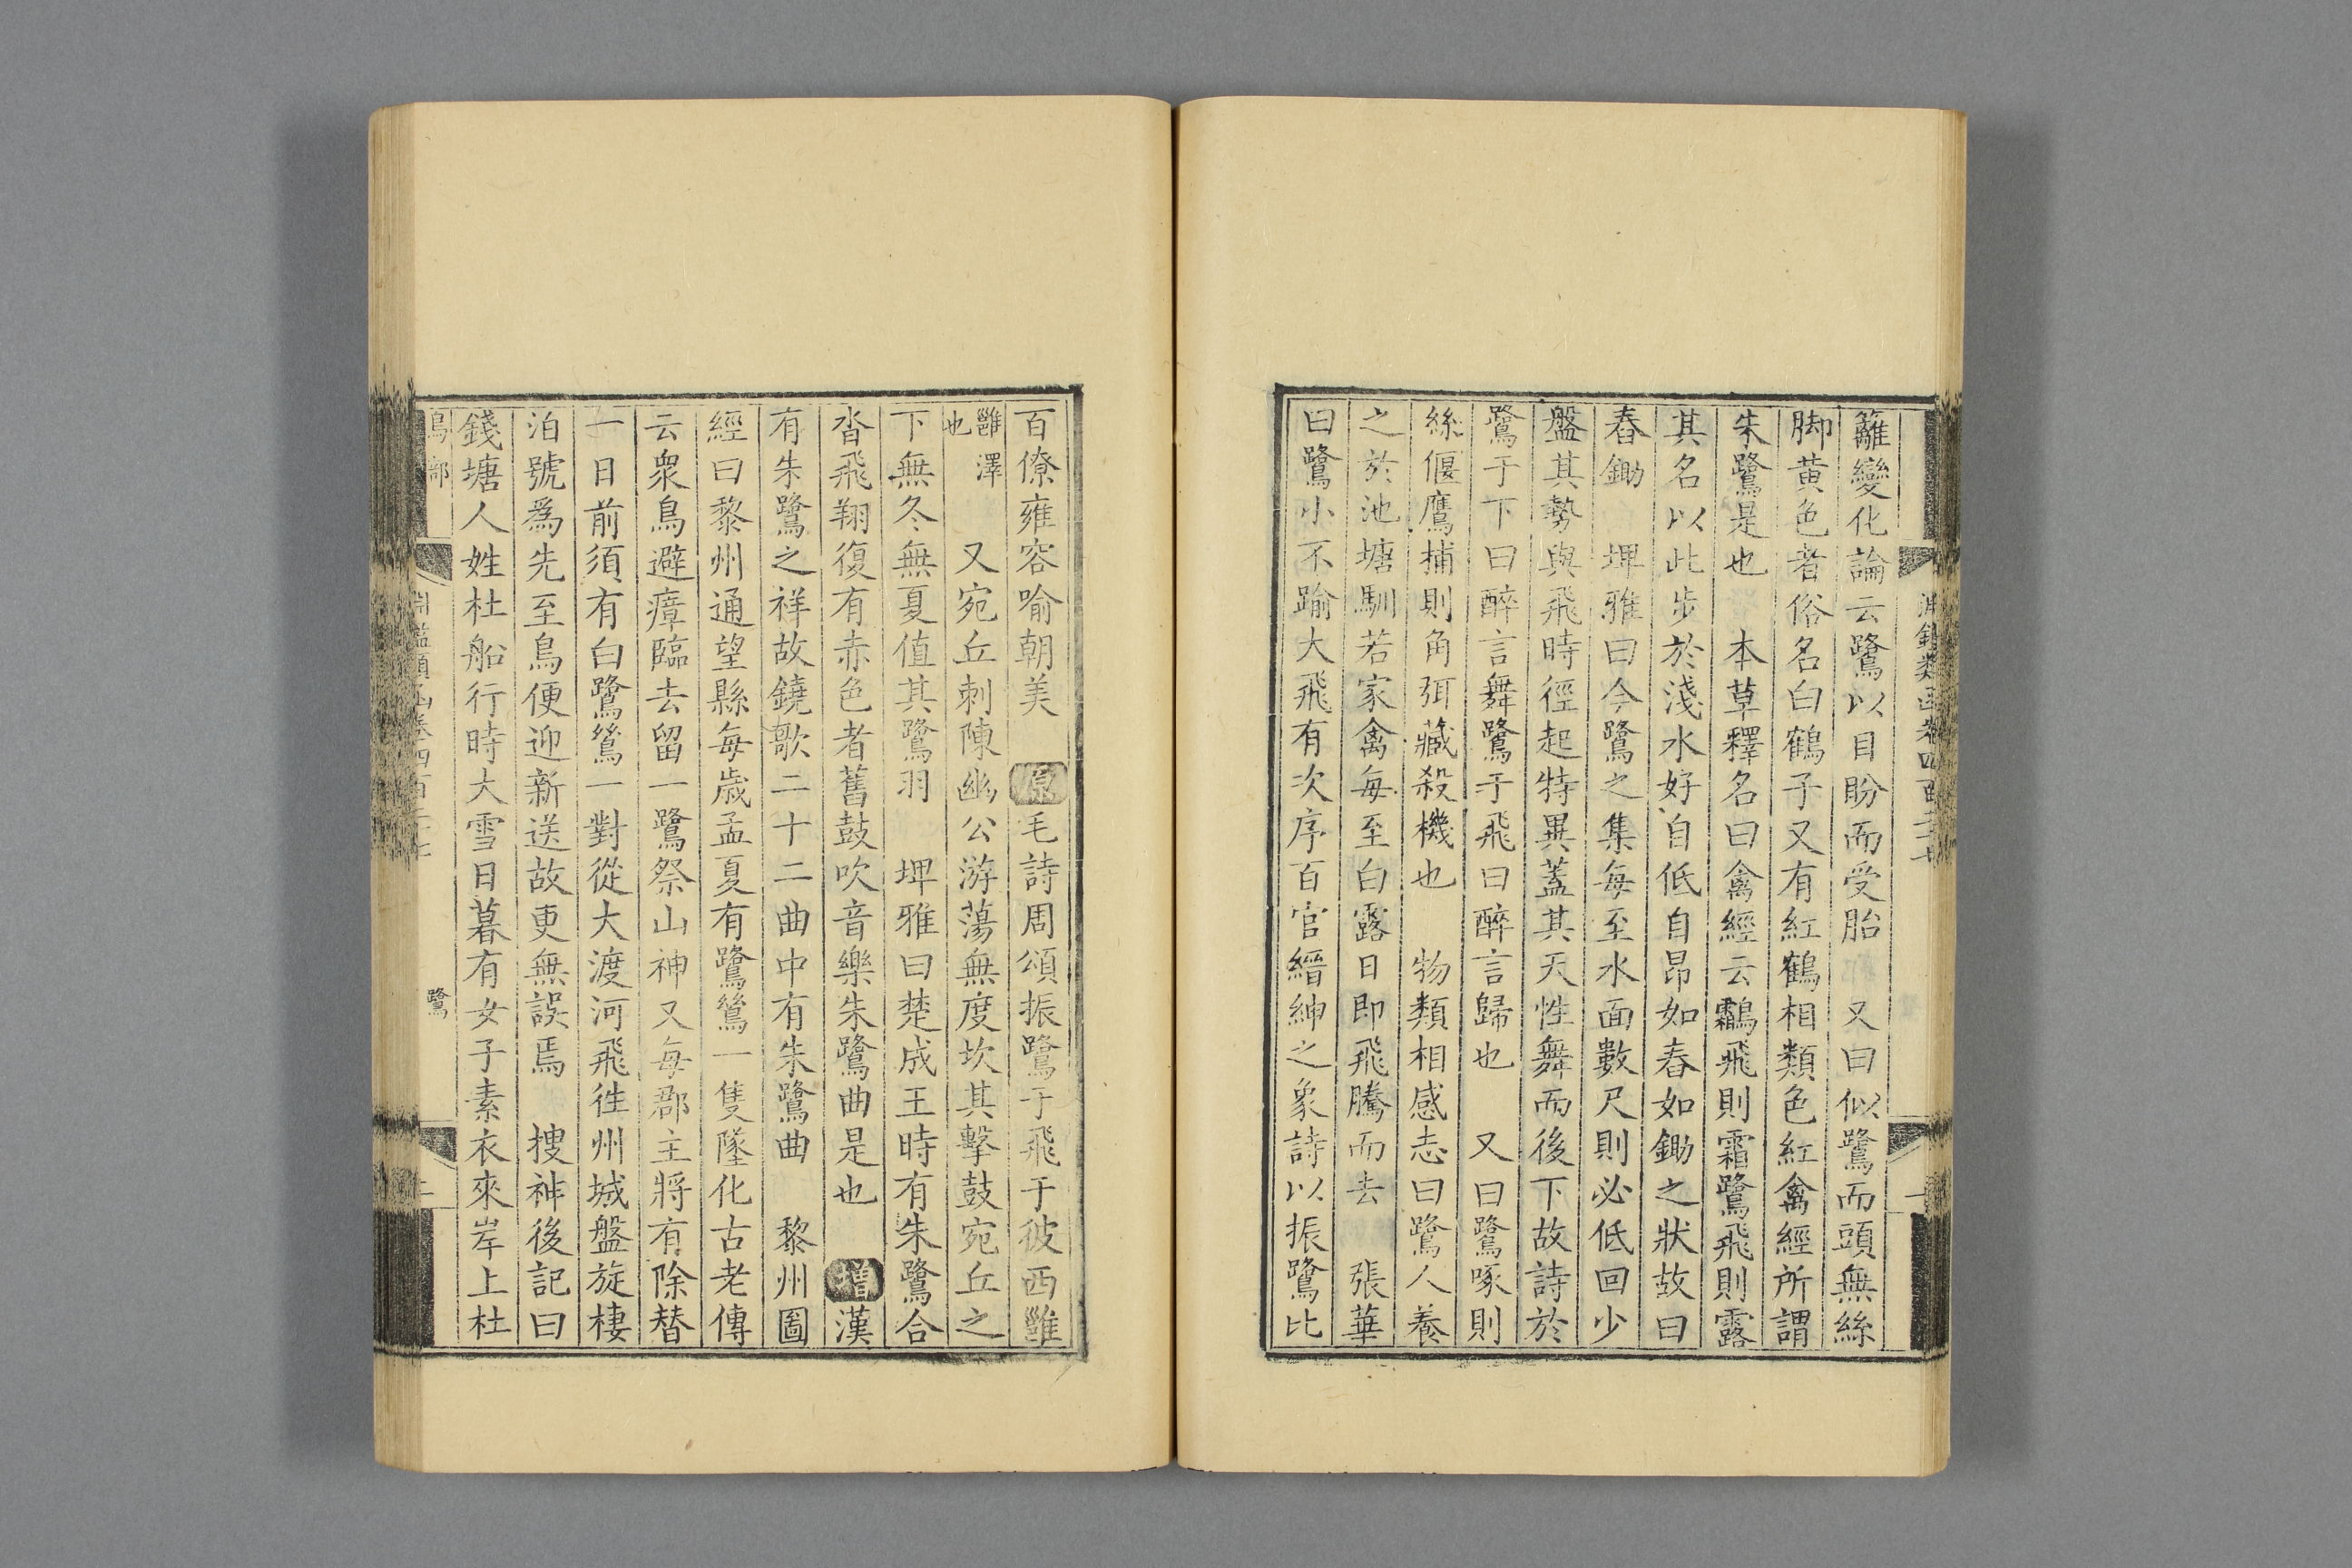 籬變化論云鷺以目盼而受胎　又曰似鷺而頭無絲
脚黄色者俗名白鶴子又有紅鶴相類色紅禽經所謂
朱鷺是也　本草釋名曰禽經云鸘飛則霜鷺飛則露
其名以此步於淺水好自低自昂如舂如鋤之狀故曰
舂鋤　埤雅曰今鷺之集每至水面數尺則必低回少
盤其勢與飛時徑起特異蓋其天性舞而後下故詩於
鷺于下曰醉言舞鷺于飛曰醉言歸也　又曰鷺啄則
絲偃鷹捕則角弭藏殺機也　物類相感志曰鷺人養
之於池塘馴若家禽每至白露日即飛騰而去　張華
曰鷺小不踰大飛有次序百官縉紳之象詩以振鷺比
百僚雍容喻朝美　原毛詩周頌振鷺于飛于彼西雝
雝澤
也
又宛丘刺陳幽公游蕩無度坎其擊鼓宛丘之
下無冬無夏值其鷺羽　埤雅曰楚成王時有朱鷺合
沓飛翔復有赤色者舊鼓吹音樂朱鷺曲是也　增漢
有朱鷺之祥故鐃歌二十二曲中有朱鷺曲　黎州圖
經曰黎州通望縣每歲孟夏有鷺鷥一隻墜化古老傳
云衆鳥避瘴臨去留一鷺祭山神又每郡主將有除替
一日前須有白鷺鷥一對從大渡河飛徃州城盤旋棲
泊號爲先至鳥便迎新送故更無誤焉　搜神後記曰
錢塘人姓杜船行時大雪日暮有女子素衣來岸上杜
鳥部
鷺